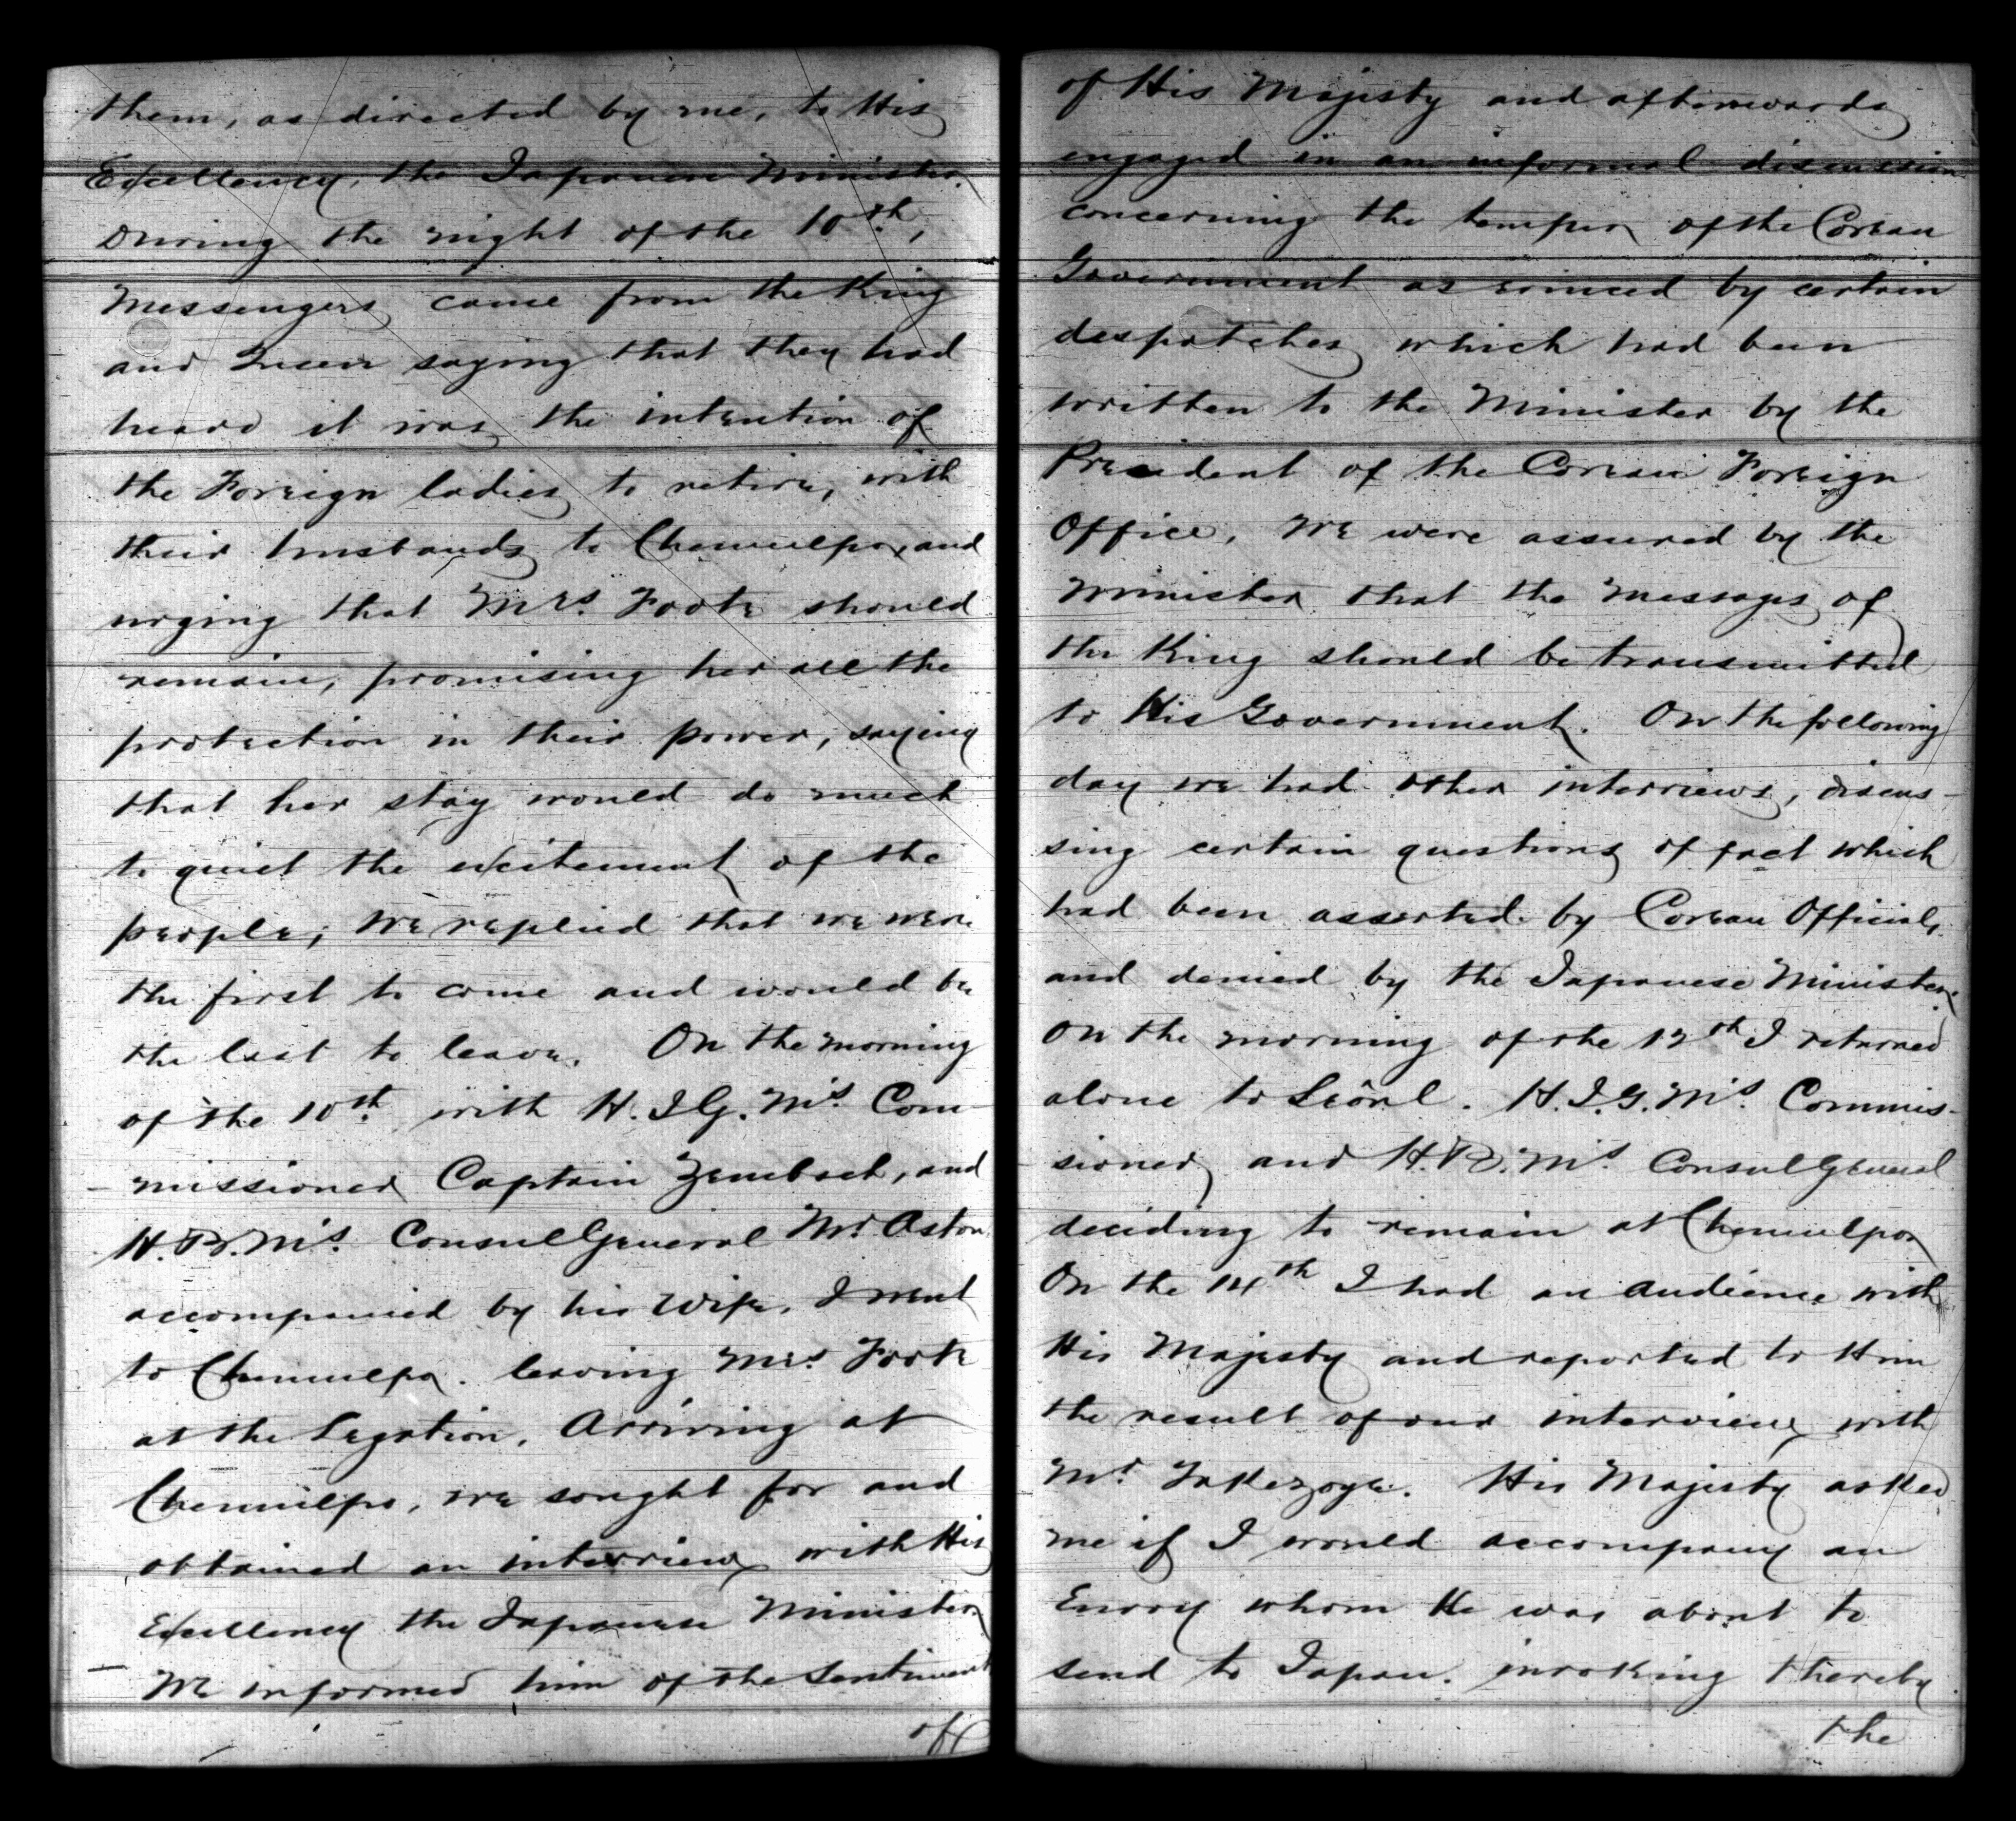 them, as directed by me, to His
Excellency, the Japanese Minister.
During the night of the 10th,
Messengers came from the King
and Queen saying that they had
heard it was the intention of
the Foreign ladies to retire, with
their husbands to Chemulpo, and
urging that Mrs. Foote should
remain, promising her all the
protection in their power, saying
that her stay would do much
to quiet the excitement of the
people; We replied that we were
the first to come and would be
the last to leave. On the morning
of the 10th with H.I.G.M's. Com-
-missioner Captain Zembsch, and
H.B.M's. Consul General Mr. Aston
accompanied by his Wife. I went
to Chemulpo. leaving Mrs. Foote
at the Legation. Arriving at
Chemulpo, we sought for and
obtained an interview with His
Excellency the Japanese Minister.
We informed him of the Sentiment
of
of His Majesty and afterwards
engaged in an informal discussion
concerning the temper of the Corean
Government as evinced by certain
despatches which had been
written to the Minister by the
President of the Corean Foreign
Office. We were assured by the
Minister that the messages of
the King should be transmitted
to His Government. On the following
day we had other interviews, discus-
sing certain questions of fact which
had been asserted by Corean Officials,
and denied by the Japanese Minister.
On the morning of the 12th I returned
alone to Seôul. H.I.G.M's. Commis-
sioner and H.B.M's. Consul General
deciding to remain at Chemulpo
On the 14th I had an audience with
His Majesty and reported to Him
the result of our interview with
Mr. Takezoye. His Majesty asked
me if I would accompany an
Envoy whom He was about to
send to Japan. invoking thereby
the